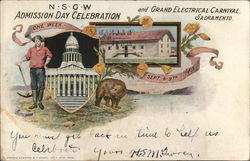 N·S·G·W
ADMISSION DAY CELEBRATION
and GRAND ELECTRICAL CARNIVAL,
SACRAMENTO.
ONE WEEK
SEPT. 4-9TH
You must get back in time to help us
Celebrate
yours